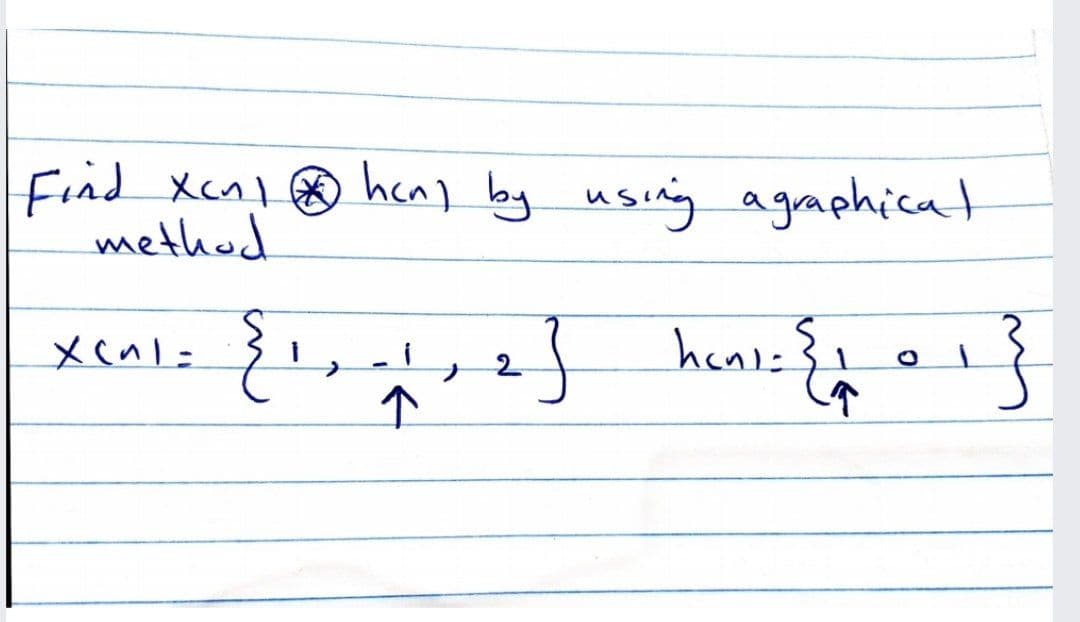 Find x[n] ⊛ h[n] by using a graphical
method
x[n] = {1, -1, 2} h[n] = {1 0 1}
↑ ↑